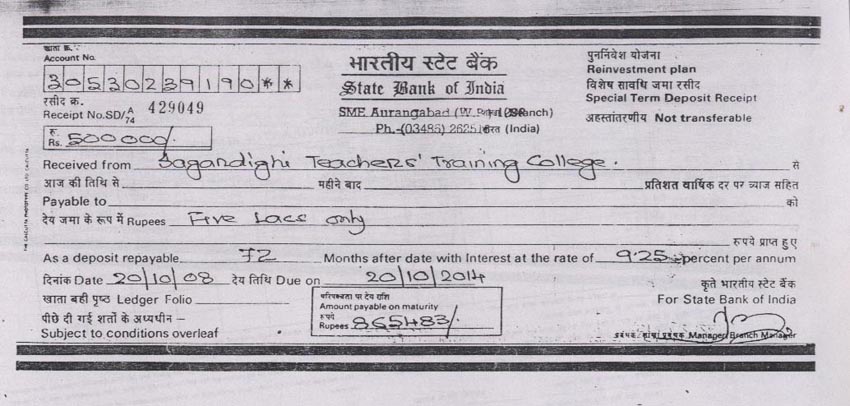 खाता क्र.
Account No.
30530239190**
रसीद क्र.
Receipt No.SD/A/74 429049
रु.
Rs. 500000/-
भारतीय स्टेट बैंक
State Bank of India
SME Aurangabad (W.
Ph.-(03485) 2625 (India)
पुनर्निवेश योजना
Reinvestment plan
विशेष सावधि जमा रसीद
Special Term Deposit Receipt
अहस्तांतरणीय Not transferable
Received from Sagardighi Teachers' Training College. से
आज की तिथि से महीने बाद प्रतिशत वार्षिक दर पर ब्याज सहित
Payable to को
देय जमा के रूप में Rupees Five Lacs only
रुपये प्राप्त हुए
As a deposit repayable 72 Months after date with Interest at the rate of 9.25 percent per annum
दिनांक Date 20/10/08 देय तिथि Due on 20/10/2014
कृते भारतीय स्टेट बैंक
For State Bank of India
खाता बही पृष्ठ Ledger Folio
परिपक्वता पर देय राशि
Amount payable on maturity
रुपये
Rupees 865483/-
पीछे दी गई शर्तों के अध्यधीन –
Subject to conditions overleaf
प्रबंधक Manager/Branch Manager